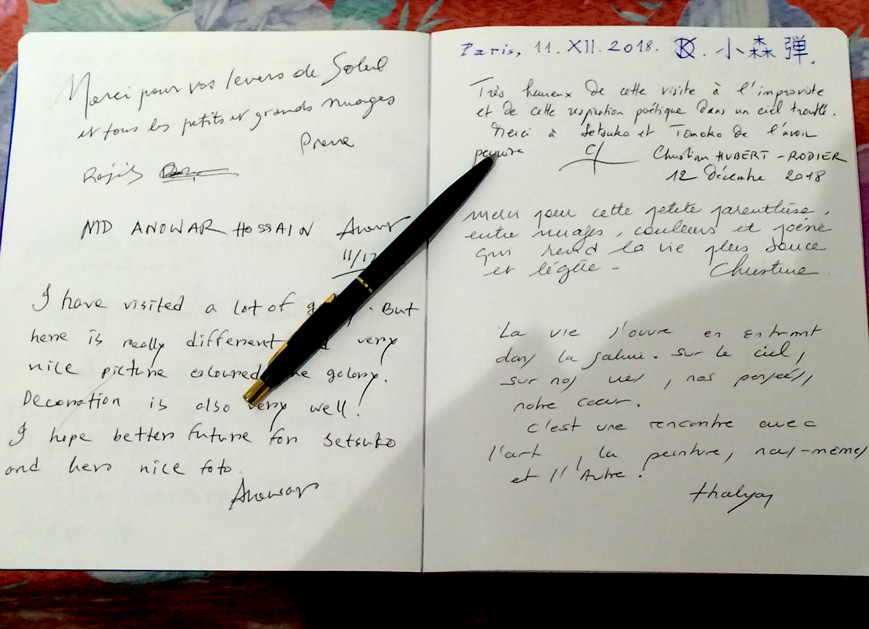 Merci pour vos levers de Soleil
et tous les petits et grands nuages
MD ANOWAR HOSSAIN Anowar
11/12
I have visited a lot of g . But
here is really different very
nice picture coloured galory.
Decoration is also very well!
I hope better future for Setsuko
and hers nice foto
Anowar
Paris, 11. XII. 2018. 小森 弾.
Très heureux de cette visite à l'improviste
et de cette respiration poétique dans un ciel troublé.
Merci à Setsuko et Tomoko de l'avoir
Christian HUBERT-RODIER
12 décembre 2018
merci pour cette petite parenthèse,
entre nuages, couleurs et poésie
qui rend la vie plus douce
et légère -
Christine
La vie s'ouvre en entrant
dans la galerie. Sur le ciel,
sur nos vies, nos pensées,
notre cœur.
C'est une rencontre avec
l'art, la peinture, nous-mêmes
et l'Autre!
thalya